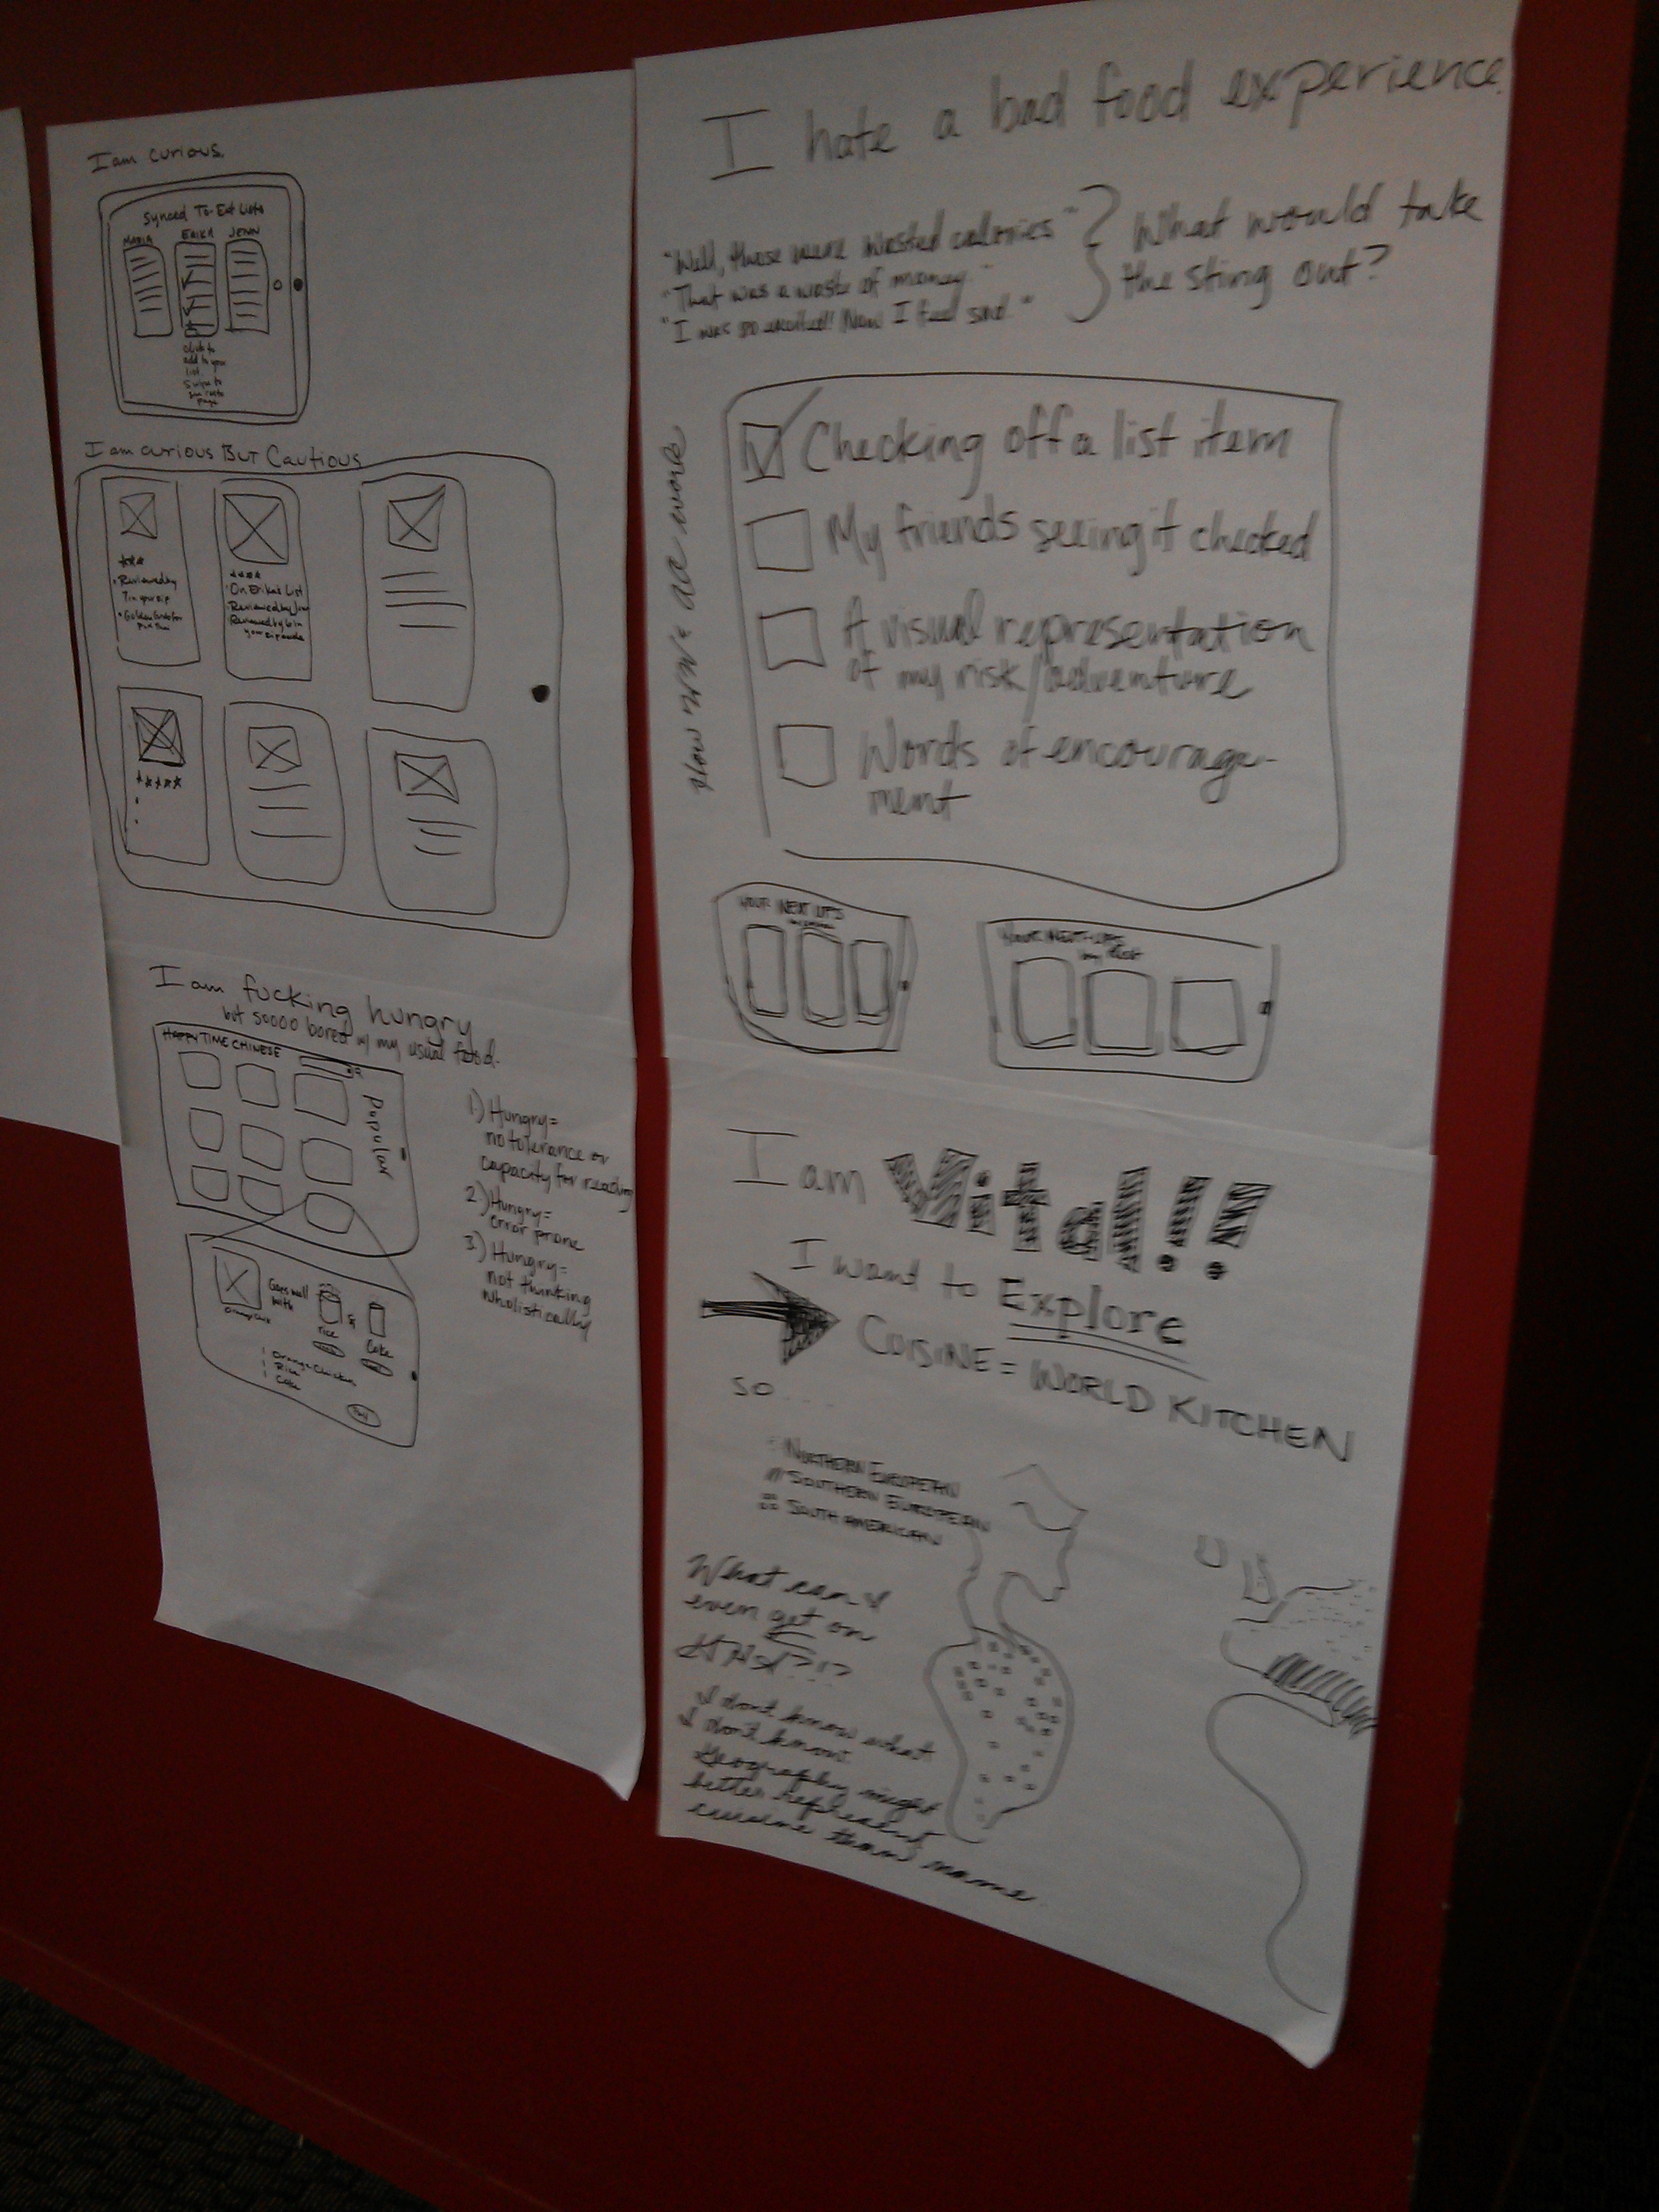 I am curious.
Synced To-Eat Lists
MARIA ERIKA JENN
click to
add to your
list.
Swipe to
page
I am curious BUT Cautious
Reviewed by
7 in your zip
On Erika's List
Reviewed by Jenn
Reviewed by 6 in
your zip code
I am fucking hungry
but soooo bored w/ my usual food.
HAPPY TIME CHINESE
Popular
1.) Hungry=
no tolerance or
capacity for reading
2.) Hungry=
error prone
3.) Hungry=
not thinking
wholistically
Goes well
with
rice
Coke
Orange Chicken
Rice
Coke
I hate a bad food experience.
"Well, those were wasted calories"
"That was a waste of money."
"I was so excited! Now I feel sad."
What would take
the sting out?
Checking off a list item
My friends seeing it checked
A visual representation
of my risk/adventure
Words of encourage-
ment
YOUR NEXT UPS
YOUR NEXT-UPS
by Risk
I am Vital!!!
I want to Explore
CUISINE = WORLD KITCHEN
SO
NORTHERN EUROPEAN
SOUTHERN EUROPEAN
SOUTH AMERICAN
What can I
even get on
this?!?
I don't know what
I don't know.
Geography might
better represent
cuisine than name